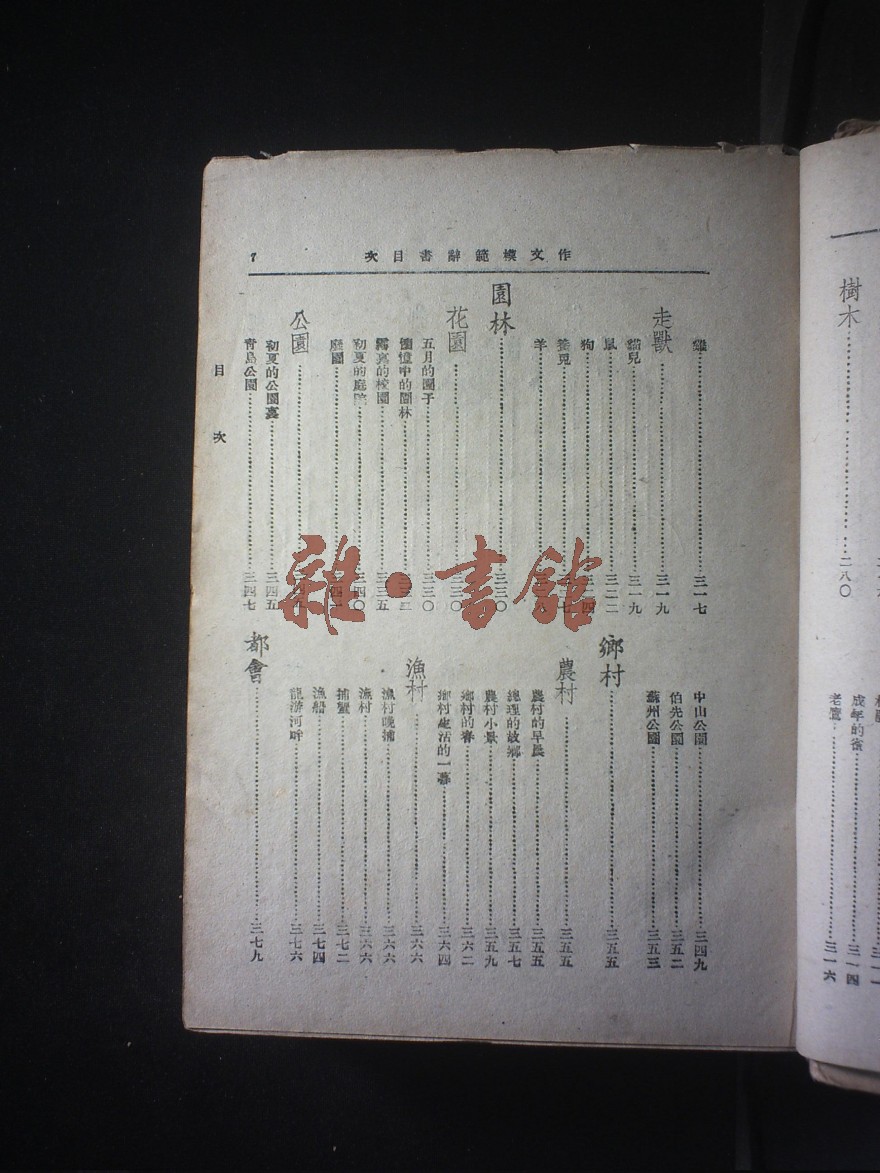 作文模範辭書目次
7
雞 三一七
走獸 三一九
貓兒 三一九
鼠 三二二
狗 三二四
養兎
羊
園林 三三〇
花園 三三〇
五月的園子 三三〇
憶中的園林
霧裏的校園 三三五
初夏的庭院 三四〇
廢園
公園
初夏的公園裏 三四五
青島公園 三四七
中山公園 三四九
伯先公園 三五二
蘇州公園 三五三
鄉村 三五五
農村 三五五
農村的早晨 三五五
總理的故鄉 三五七
農村小景 三五九
鄉村的春 三六二
鄉村生活的一幕 三六四
漁村 三六六
漁村晚浦 三六六
漁村 三六六
捕蟹 三七二
漁船 三七四
龍游河畔 三七六
都會 三七九
目次
樹木 二八〇
成年的雀 三一四
老鷹 三一六
雜·書館